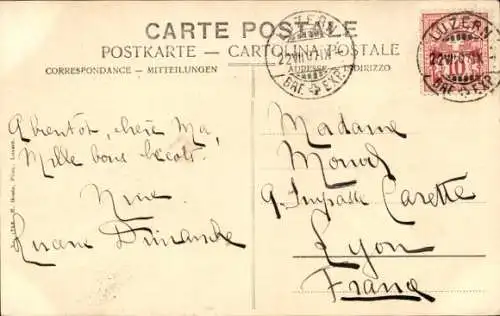 CARTE POSTALE
POSTKARTE — CARTOLINA POSTALE
CORRESPONDANCE - MITTEILUNGEN
ADRESSE - INDIRIZZO
LUZERN
22 VII 07
BRF. EXP.
LUZERN
BRF. EXP.
A bientôt, chère Ma,
Mille bons bécots.
Nine
Dimanche
Madame
Monod
9. Impasse Carette
Lyon
France